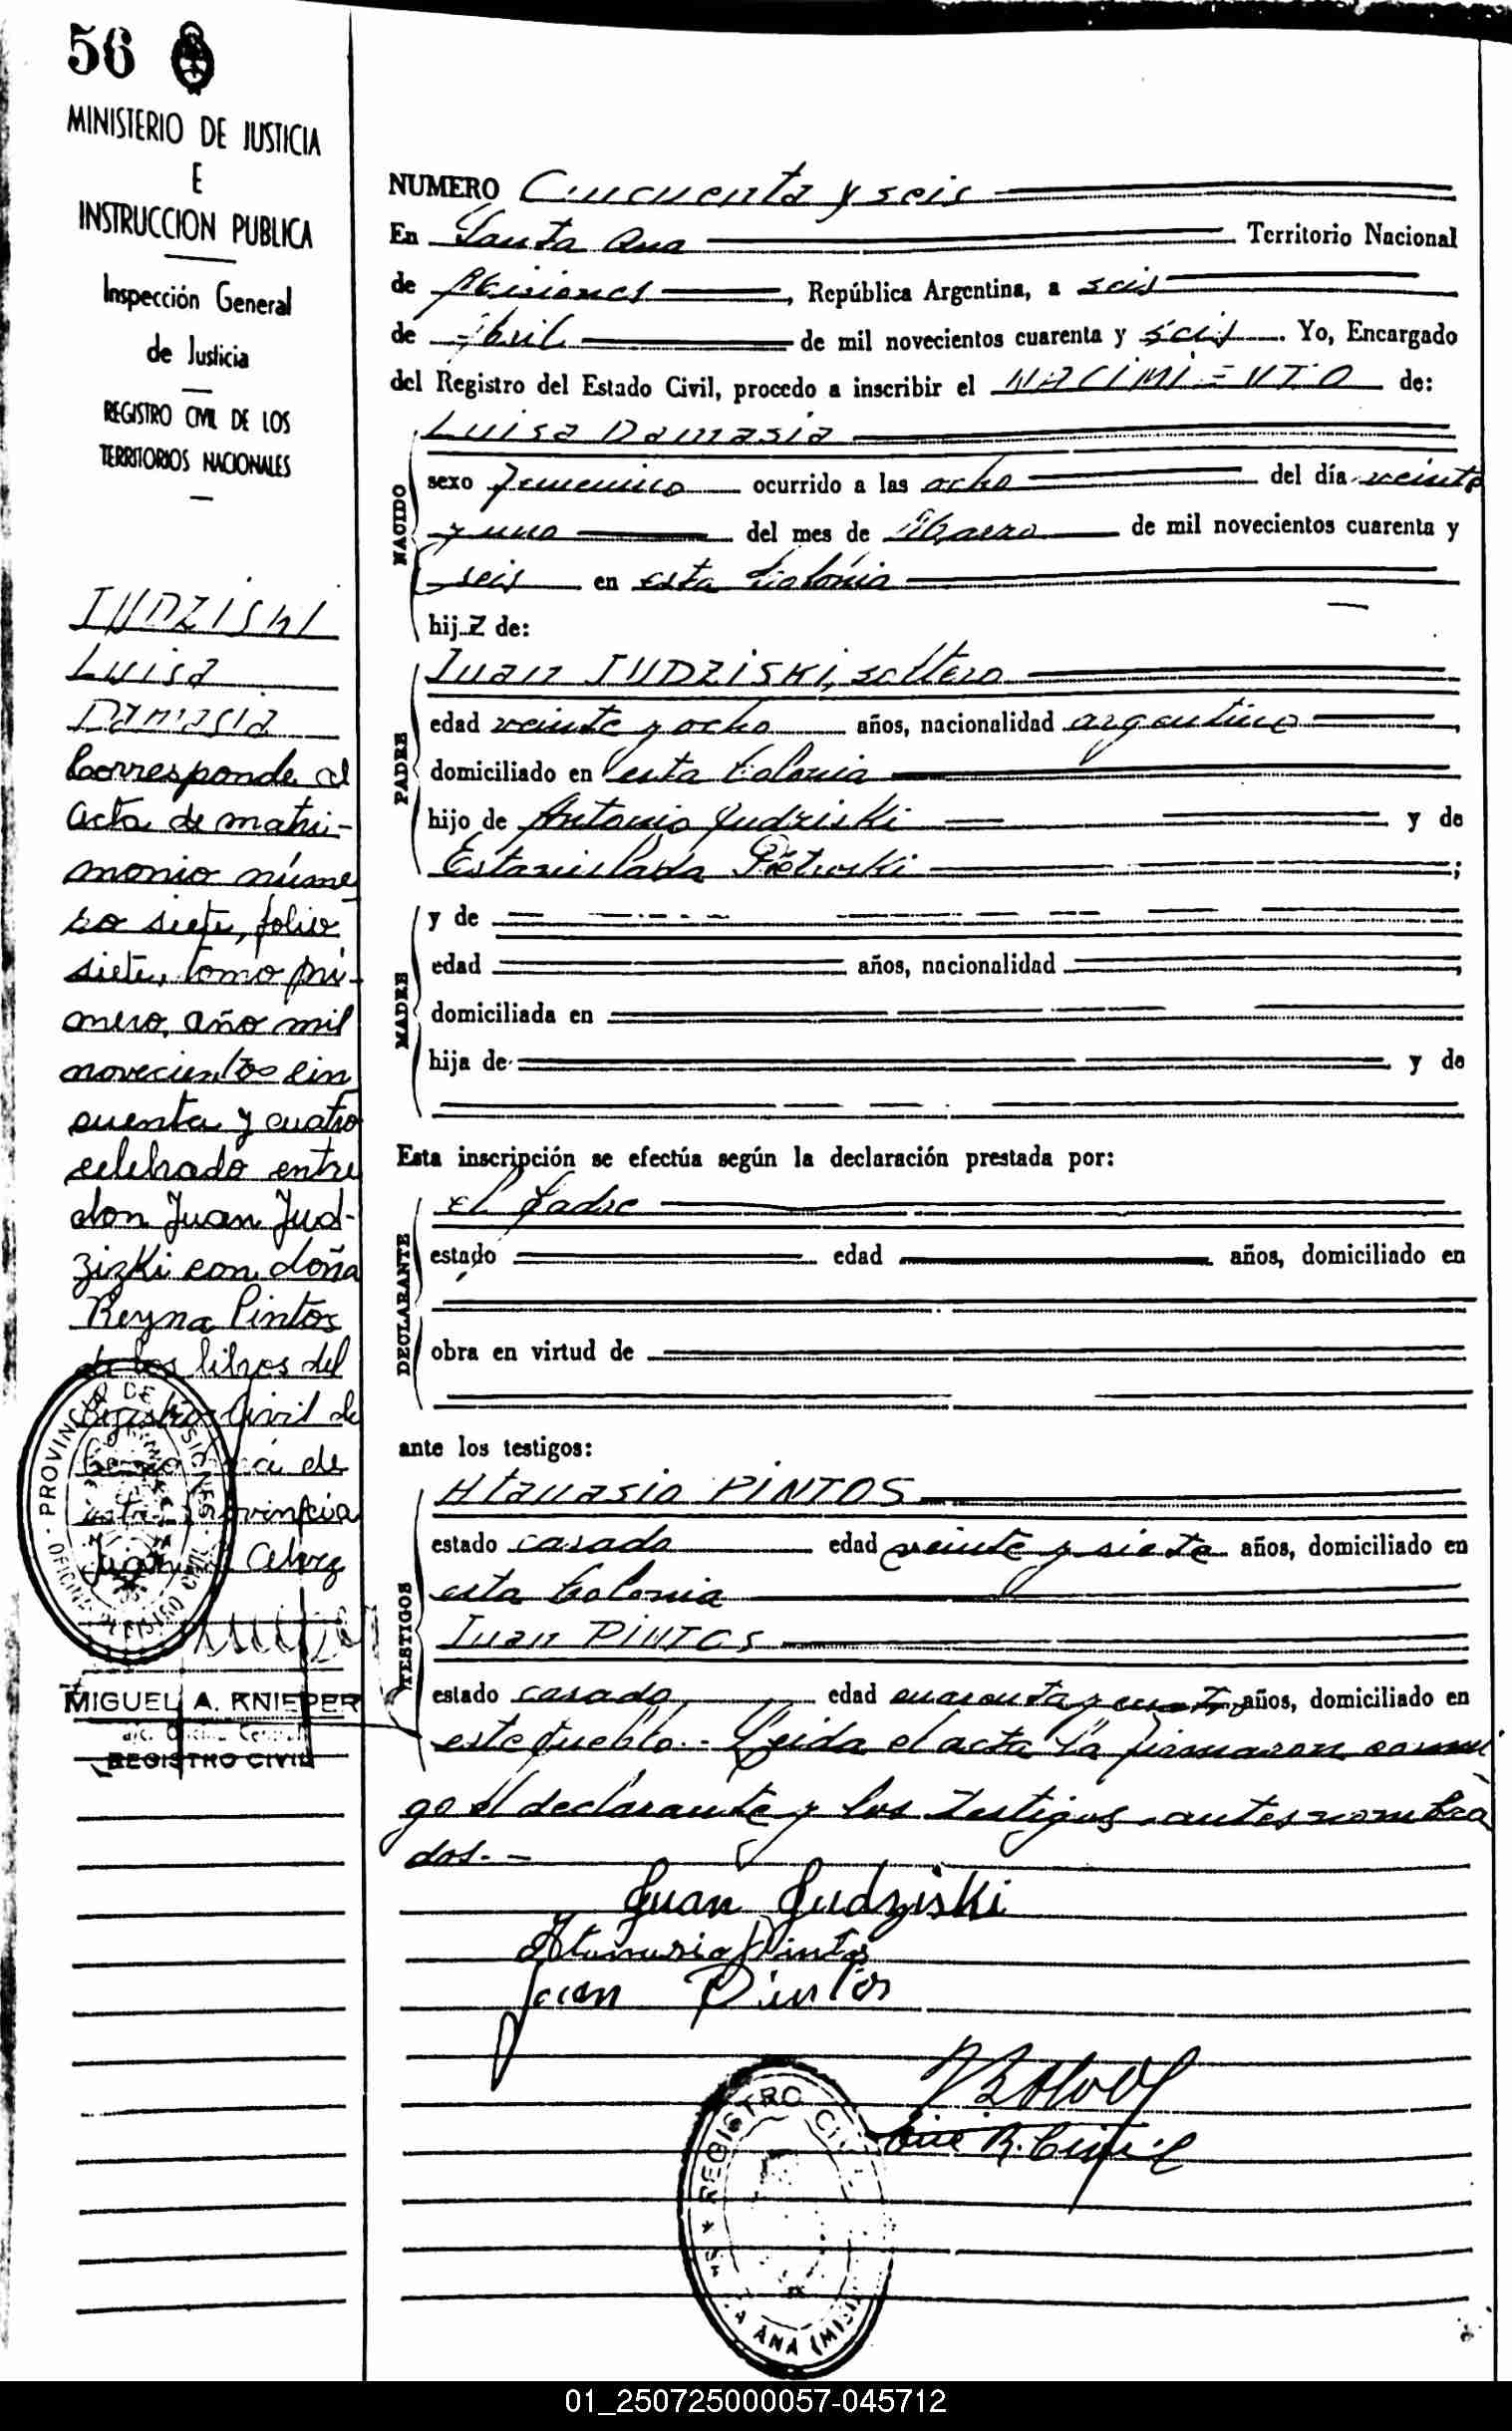 56
MINISTERIO DE JUSTICIA
E
INSTRUCCION PUBLICA
Inspección General
de Justicia
REGISTRO CIVIL DE LOS
TERRITORIOS NACIONALES
JUDZISKI
Luisa
Damasia
Corresponde al
acta de matri-
monio núme
ro siete, folio
siete, tomo pri-
mero, año mil
novecientos cin
cuenta y cuatro
celebrado entre
don Juan Jud-
zizki con doña
Reyna Pintos
de los libros del
Registro Civil de
de
esta provincia
PROVINCIA DE MISIONES
MIGUEL A. KNIEPER
REGISTRO CIVIL
NUMERO Cincuenta y seis
En Santa Ana Territorio Nacional
de Misiones, República Argentina, a seis
de Abril de mil novecientos cuarenta y seis. Yo, Encargado
del Registro del Estado Civil, procedo a inscribir el NACIMIENTO de:
NACIDO
Luisa Damasia
sexo femenino ocurrido a las ocho del día veinte
y uno del mes de de mil novecientos cuarenta y
seis en esta Colonia
hija de:
PADRE
Juan JUDZISKI, soltero
edad veinte y ocho años, nacionalidad argentino
domiciliado en esta Colonia
hijo de Antonio Judziski y de
Estanislada ;
MADRE
y de
edad años, nacionalidad
domiciliada en
hija de y de
Esta inscripción se efectúa según la declaración prestada por:
DECLARANTE
el padre
estado edad años, domiciliado en
obra en virtud de
ante los testigos:
TESTIGOS
Atanasio PINTOS
estado casado edad veinte y siete años, domiciliado en
esta Colonia
Juan PINTOS
estado casado edad cuarenta y años, domiciliado en
este pueblo.- Leida el acta la firmaron conmi
go el declarante y los testigos antes nombra
dos.-
Juan Judziski
Atanasio Pintos
Juan Pintos
REGISTRO CIVIL
ANA (MISIONES)
01_250725000057-045712